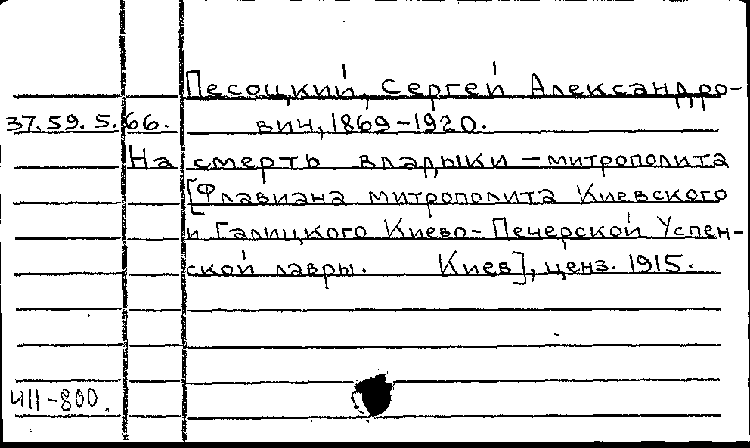 Песоцкий, Сергей Александро-
37.59.5.66. вич, 1869-1920.
На смерть владыки - митрополита
[Флавиана митрополита Киевского
и Галицкого Киево-Печерской Успен-
ской лавры. Киев], ценз. 1915.
Ч11-800.